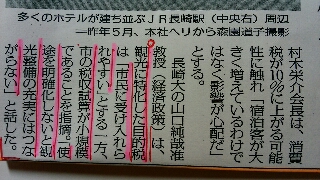 多くのホテルが建ち並ぶＪＲ長崎駅（中央右）周辺
＝昨年５月、本社ヘリから森園道子撮影
村木栄介会長は、消費
税が10％に上がる可能
性に触れ「宿泊客が大
きく増えているわけで
はなく影響が心配だ」
とする。
長崎大の山口純哉准
教授（経済政策）は、
観光に特化した目的税
は「市民に受け入れら
れやすい」とする一方、
市の税収試算が小規模
であることを指摘。「使
途を明確化しないと観
光整備の充実にはつな
がらない」と話した。